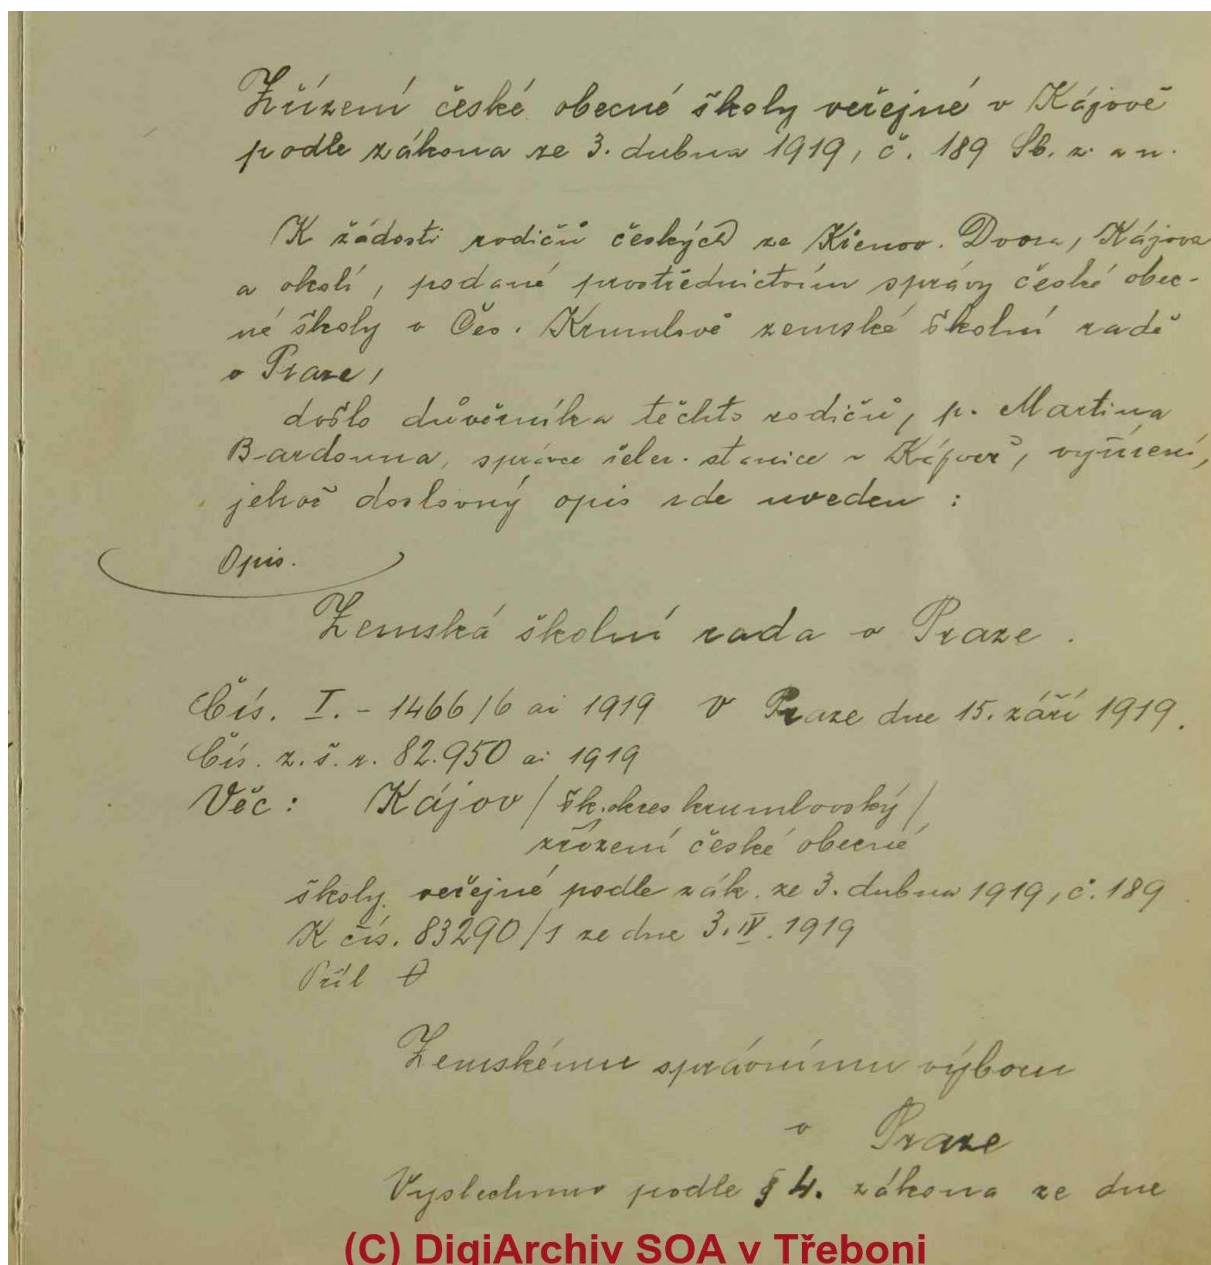 Zřízení české obecné školy veřejné v Kájově
podle zákona ze 3. dubna 1919, č. 189 Sb. z. a n.
K žádosti rodičů českých ze Křenov. Dvora, Kájova
a okolí, podané prostřednictvím správy české obec-
né školy v Čes. Krumlově zemské školní radě
v Praze,
došlo důvěrníka těchto rodičů, p. Martina
Bardouna, správce želez. stanice v Kájově, vyřízení,
jehož doslovný opis zde uveden :
Opis.
Zemská školní rada v Praze .
Čís. I. - 1466/6 ai 1919 V Praze dne 15. září 1919.
Čís. z. š. r. 82.950 ai 1919
Věc : Kájov / šk. okres krumlovský /
zřízení české obecné
školy veřejné podle zák. ze 3. dubna 1919, č. 189
K čís. 83290/1 ze dne 3. IV. 1919
Příl
Zemskému správnímu výboru
v Praze
Vyslechnuv podle § 4. zákona ze dne
(C) DigiArchiv SOA v Třeboni